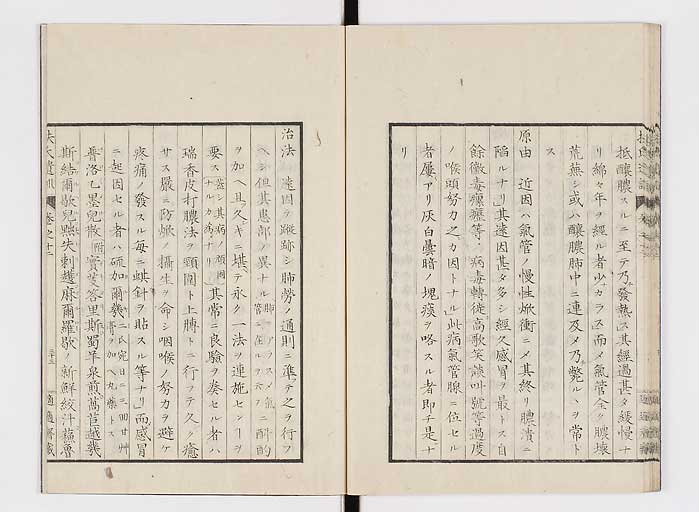 抵釀膿スルニ至テ乃發熱ス其經過甚タ緩慢ナ
リ綿々年ヲ經ル者少カラス而メ氣管全ク膿壊
荒蕪シ或ハ釀膿肺中ニ連及メ乃斃ルヽヲ常ト
ス
原由 近因ハ氣管ノ慢性焮衝ニメ其終リ膿潰ニ
陥ルナリ其遠因甚タ多シ經久感冒ヲ最トス自
餘黴毒癩癧等ノ病毒轉徙高歌笑談叫號等過度
ノ喉頭努力之カ因トナル此病氣管腺ニ位セル
者屢アリ灰白曇暗ノ塊痰ヲ咯スル者即チ是ナ
リ
治法 遠因ヲ蹤跡シ肺勞ノ通則ニ準テ之ヲ行フ
ヘシ但其患部ノ異ナル肺ニアラスメ氣管ニ在ルヲ云フニ酙酌
ヲ加ヘ且久キニ堪テ永ク一法ヲ連施セルヿヲ
要ス蓋シ其病ノ頑固ナルカ為ナリ其常ニ良驗ヲ奏セル者ハ
瑞香皮打膿法ヲ頸圍ト上膊トニ行テ久ク癒
サス嚴ニ防焮ノ攝生ヲ命シ咽喉ノ努力ヲ避ケ
疼痛ノ發スル毎ニ蜞針ヲ貼スル等ナリ而感冒
ニ起因セル者ハ硫加爾幾
普洛乙墨兒散 實芰答里斯蜀羊泉煎萵苣越幾
斯結爾歇兒㷔失刺越麻爾羅歇ノ新鮮絞汁蘊曾
卷之十二
適適齋藏